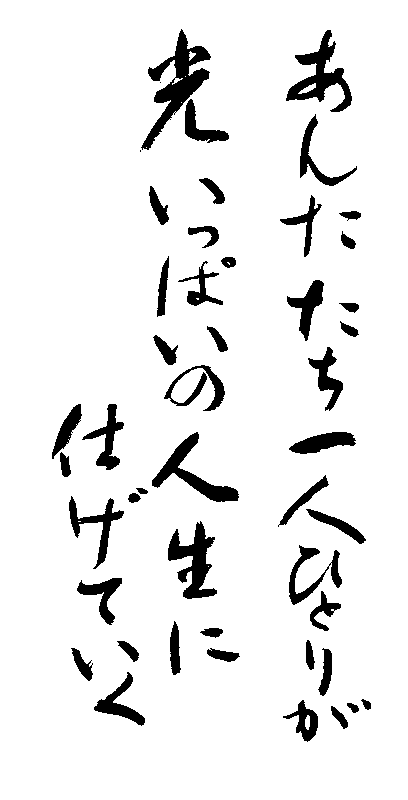 あんたたち一人ひとりが
光いっぱいの人生に
仕げていく